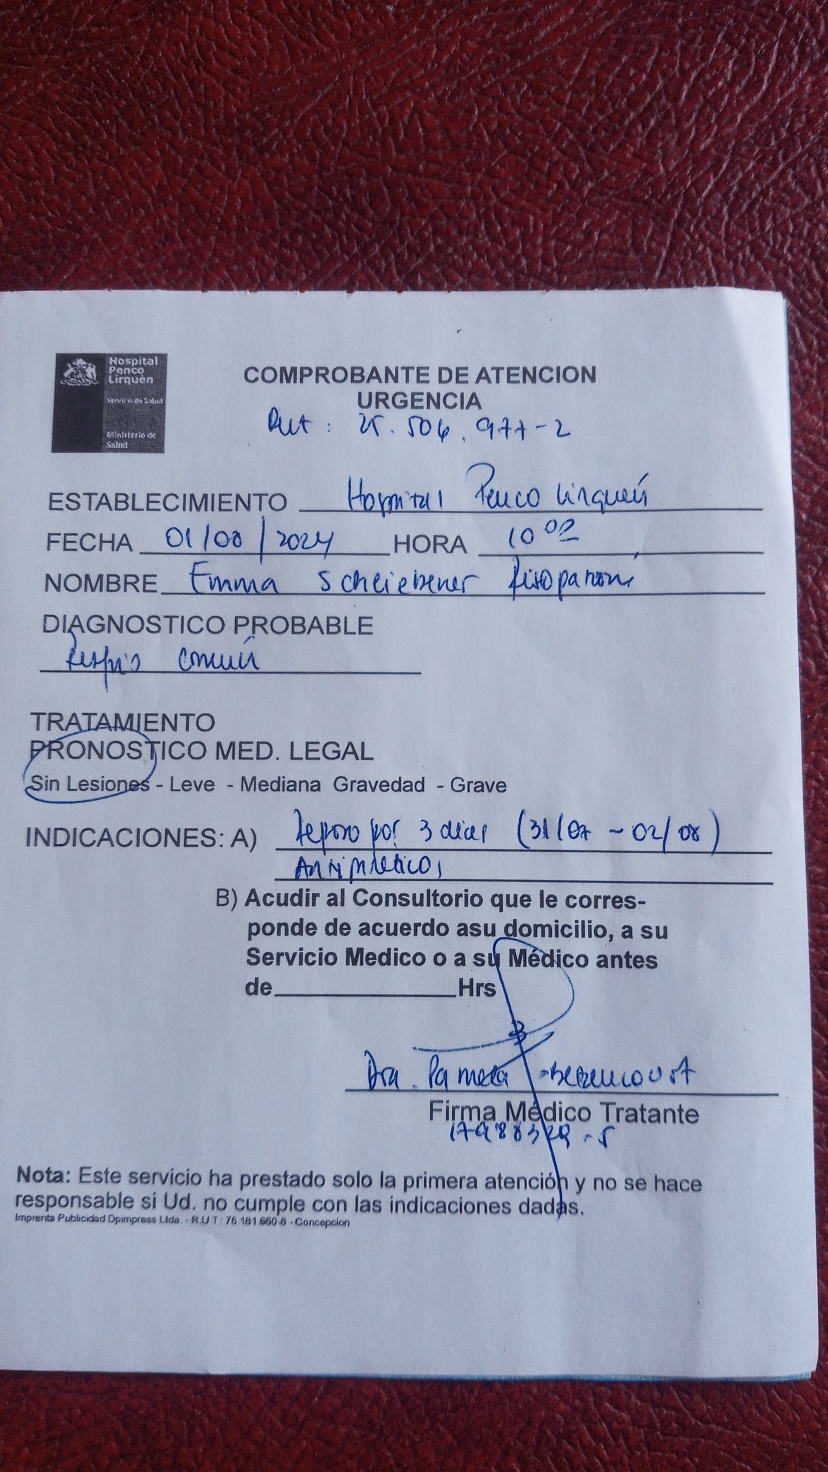 Hospital
Penco
Lirquén
Servicio de Salud
Ministerio de
Salud
COMPROBANTE DE ATENCION
URGENCIA
Rut : 25.506.977-2
ESTABLECIMIENTO Hospital Penco Lirquén
FECHA 01/08/2024 HORA 10 02
NOMBRE Emma Scheiebener
DIAGNOSTICO PROBABLE
Resfrio común
TRATAMIENTO
PRONOSTICO MED. LEGAL
Sin Lesiones - Leve - Mediana Gravedad - Grave
INDICACIONES: A) Reposo por 3 dias (31/07 - 02/08)
B) Acudir al Consultorio que le corres-
ponde de acuerdo asu domicilio, a su
Servicio Medico o a su Médico antes
de Hrs
Dra. Pamela
Firma Médico Tratante
Nota: Este servicio ha prestado solo la primera atención y no se hace
responsable si Ud. no cumple con las indicaciones dadas.
Imprenta Publicidad Dpimpress Ltda. - R.U.T.: 76.181.660-8 - Concepcion